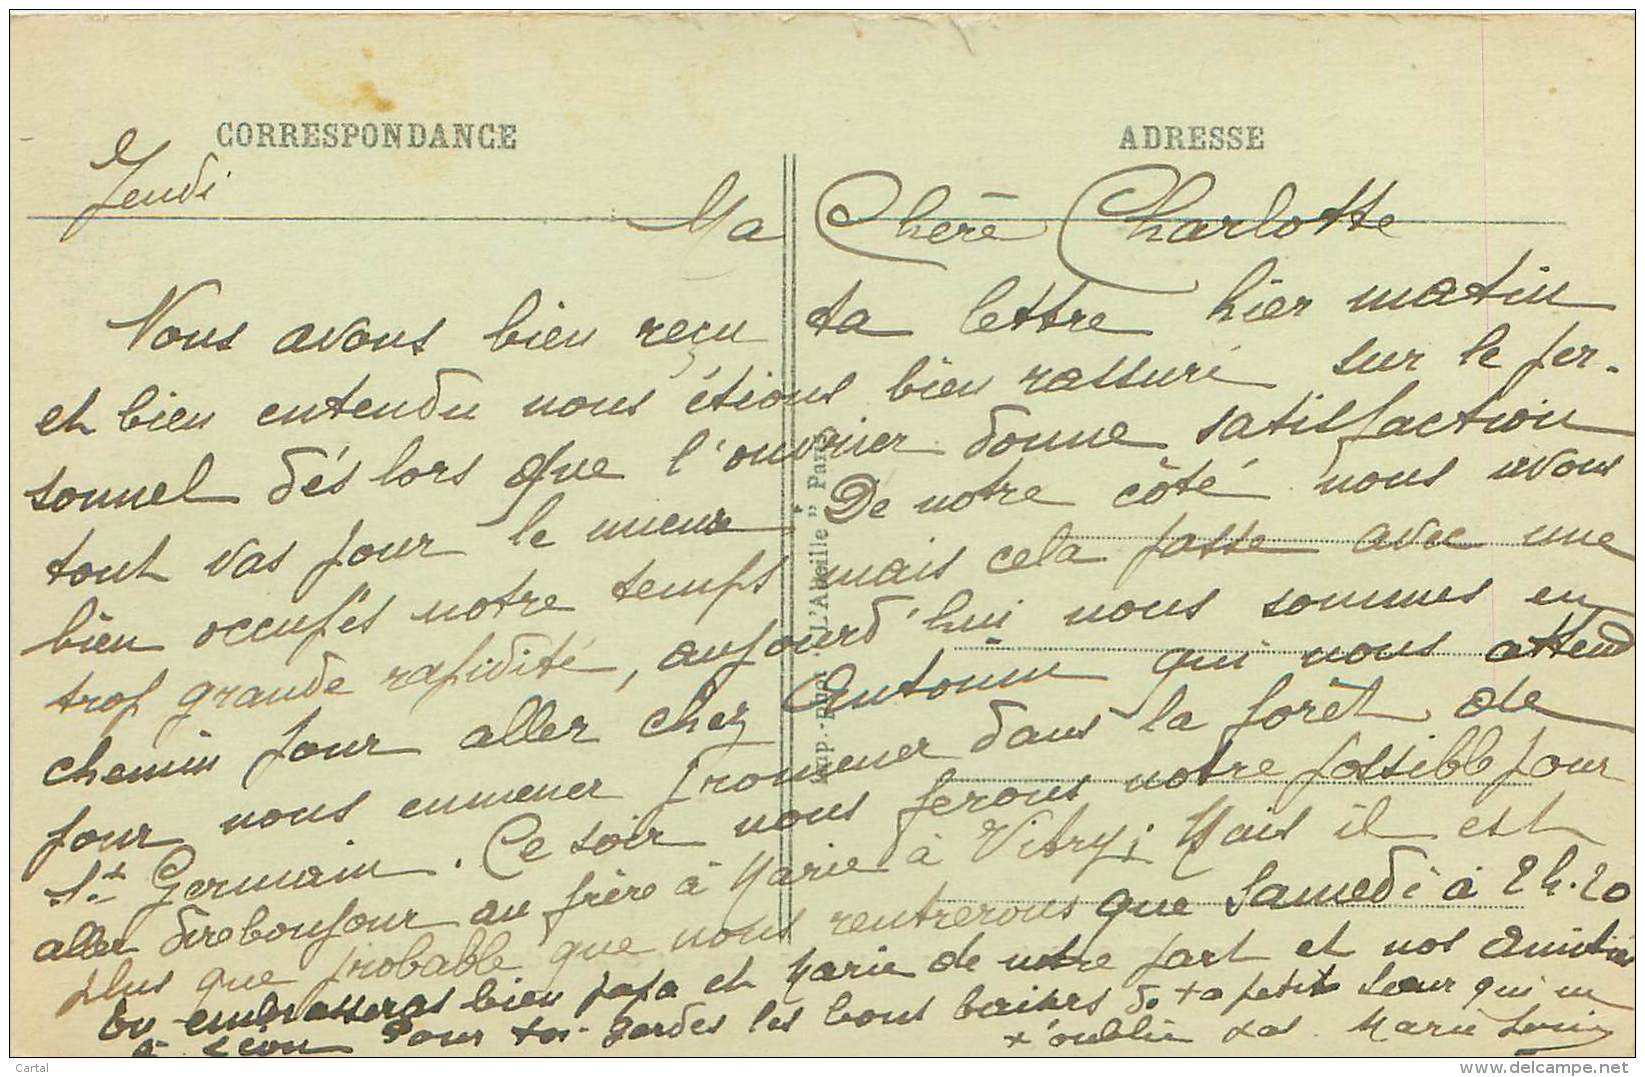 CORRESPONDANCE
ADRESSE
Jeudi
Ma Chère Charlotte
Nous avons bien reçu ta lettre hier matin
et bien entendu nous étions bien rassuré sur le per-
sonnel dés lors que l'ouvrier donne satisfaction
tout vas pour le mieux. De notre côté nous avons
bien occupés notre temps mais cela passe avec une
trop grande rapidité, aujourd'hui nous sommes en
chemin pour aller chez Antonin qui nous attend
pour nous emmener promener dans la forêt de
St Germain. Ce soir nous ferons notre possible pour
aller dire bonjour au frère à Marie à Vitry; Mais il est
plus que probable que nous rentrerons que Samedi à 2h.20
Tu embrasseras bien papa et Marie de notre part et nos Amitiés
à Léon Pour toi gardes les bons baisers de ta petite Sœur qui ne
t'oublie pas. Marie Louise
Imp. "L'Abeille" Paris
Cartal
delcampe.net